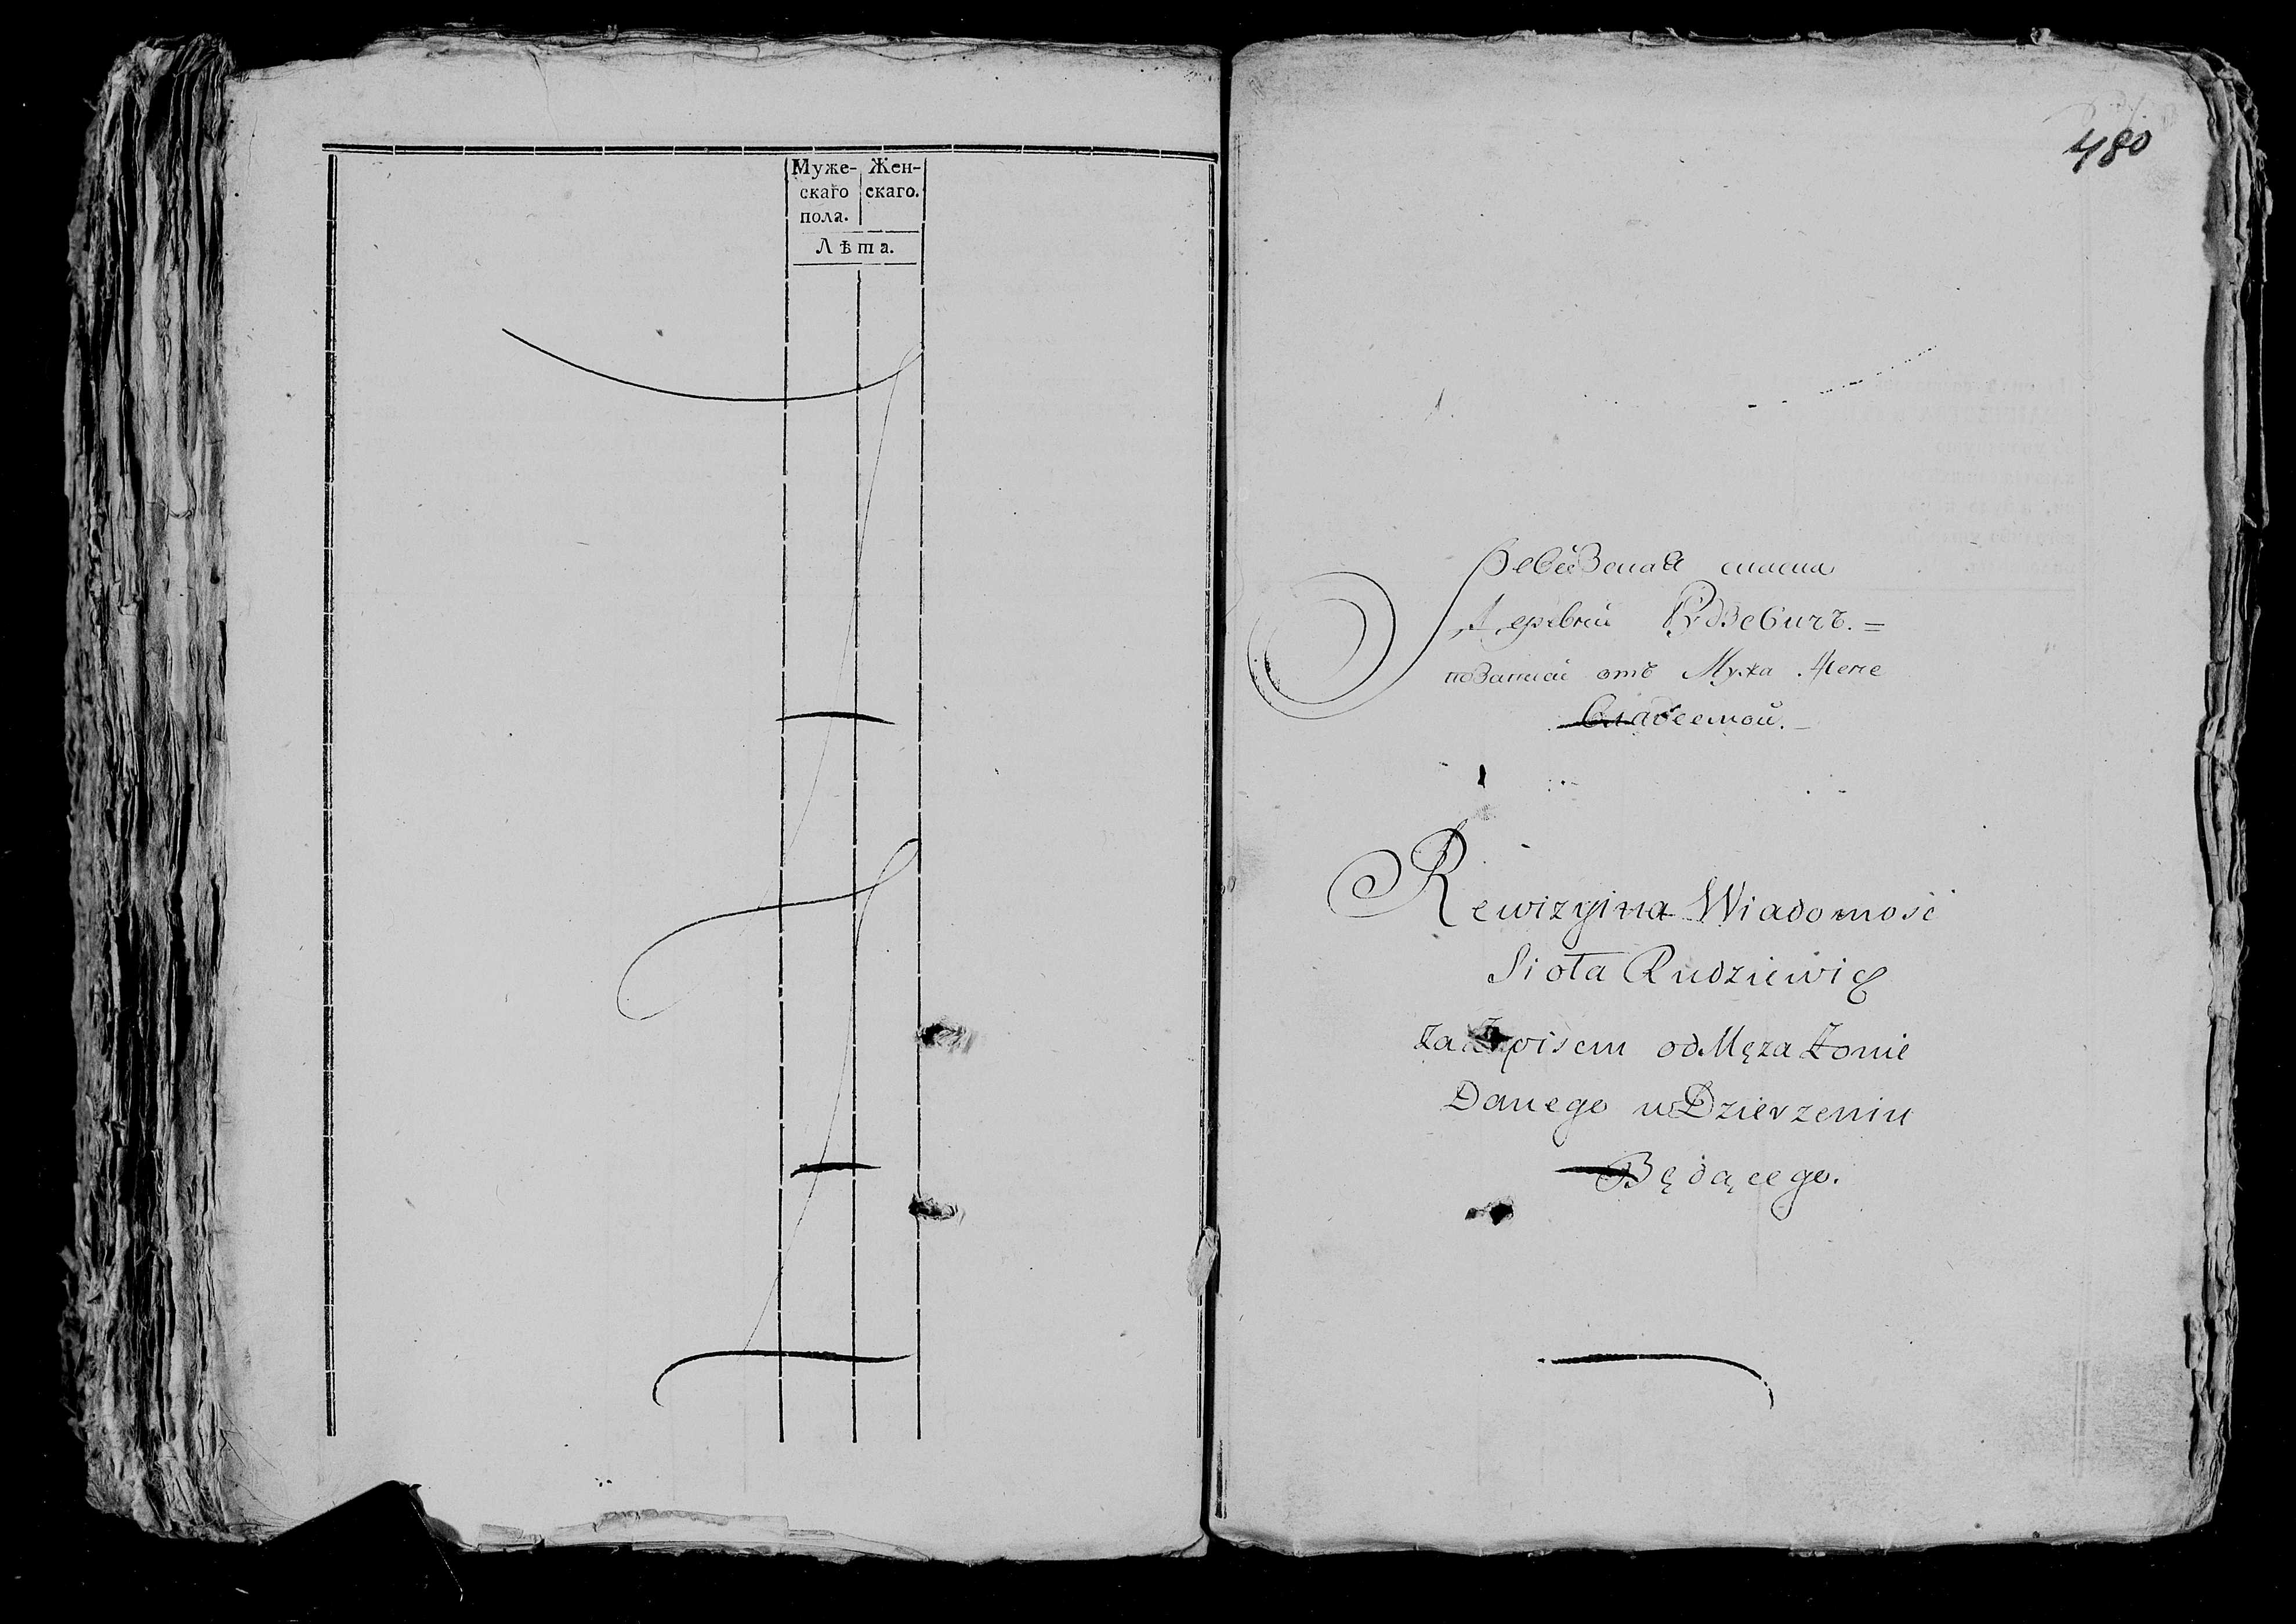 Муже- Жен-
скаго скаго.
пола.
Лѣта.
480
Ревизская
Деревни Рудзевичъ. =
по Записи отъ Мужа Жене
Владеемой. –
Rewizyina Wiadomosć
Sioła Rudziewicz
Za Zapisem od Męza Zonie
Danego w Dzierzeniu
Będącego.